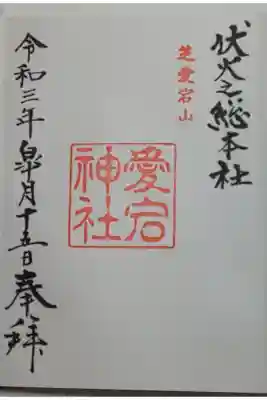 伏火之総本社
芝愛宕山
愛宕
神社
令和三年皐月十五日奉拜